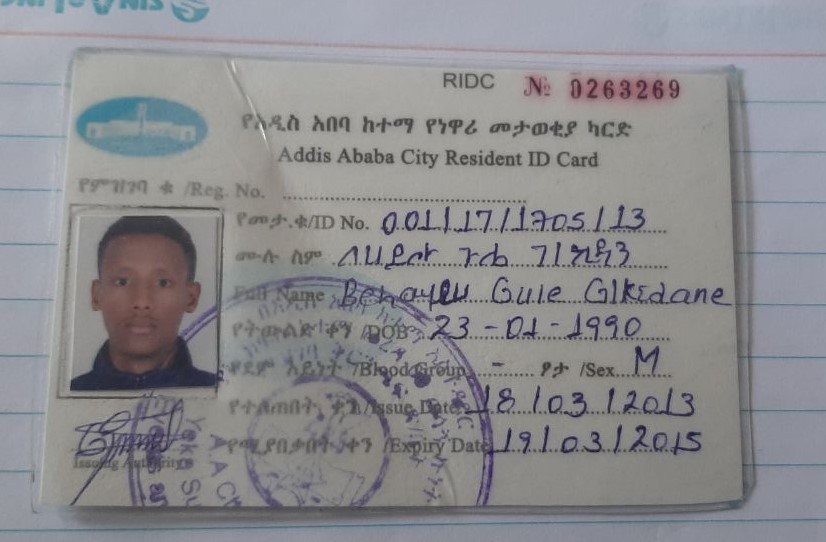 RIDC № 0263269
የአዲስ አበባ ከተማ የነዋሪ መታወቂያ ካርድ
Addis Ababa City Resident ID Card
የምዝገባ ቁ /Reg. No.
የመታ.ቁ/ID No. 001/17/1705/13
ሙሉ ስም
Full Name Gule G/kidane
የትውልድ ቀን /DOB 23-01-1990
የደም አይነት /Blood Group - ፆታ /Sex M
የተሰጠበት ቀን/Issue Date 18/03/2013
የሚያበቃበት ቀን /Expiry Date 19/03/2015
Issuing Authority